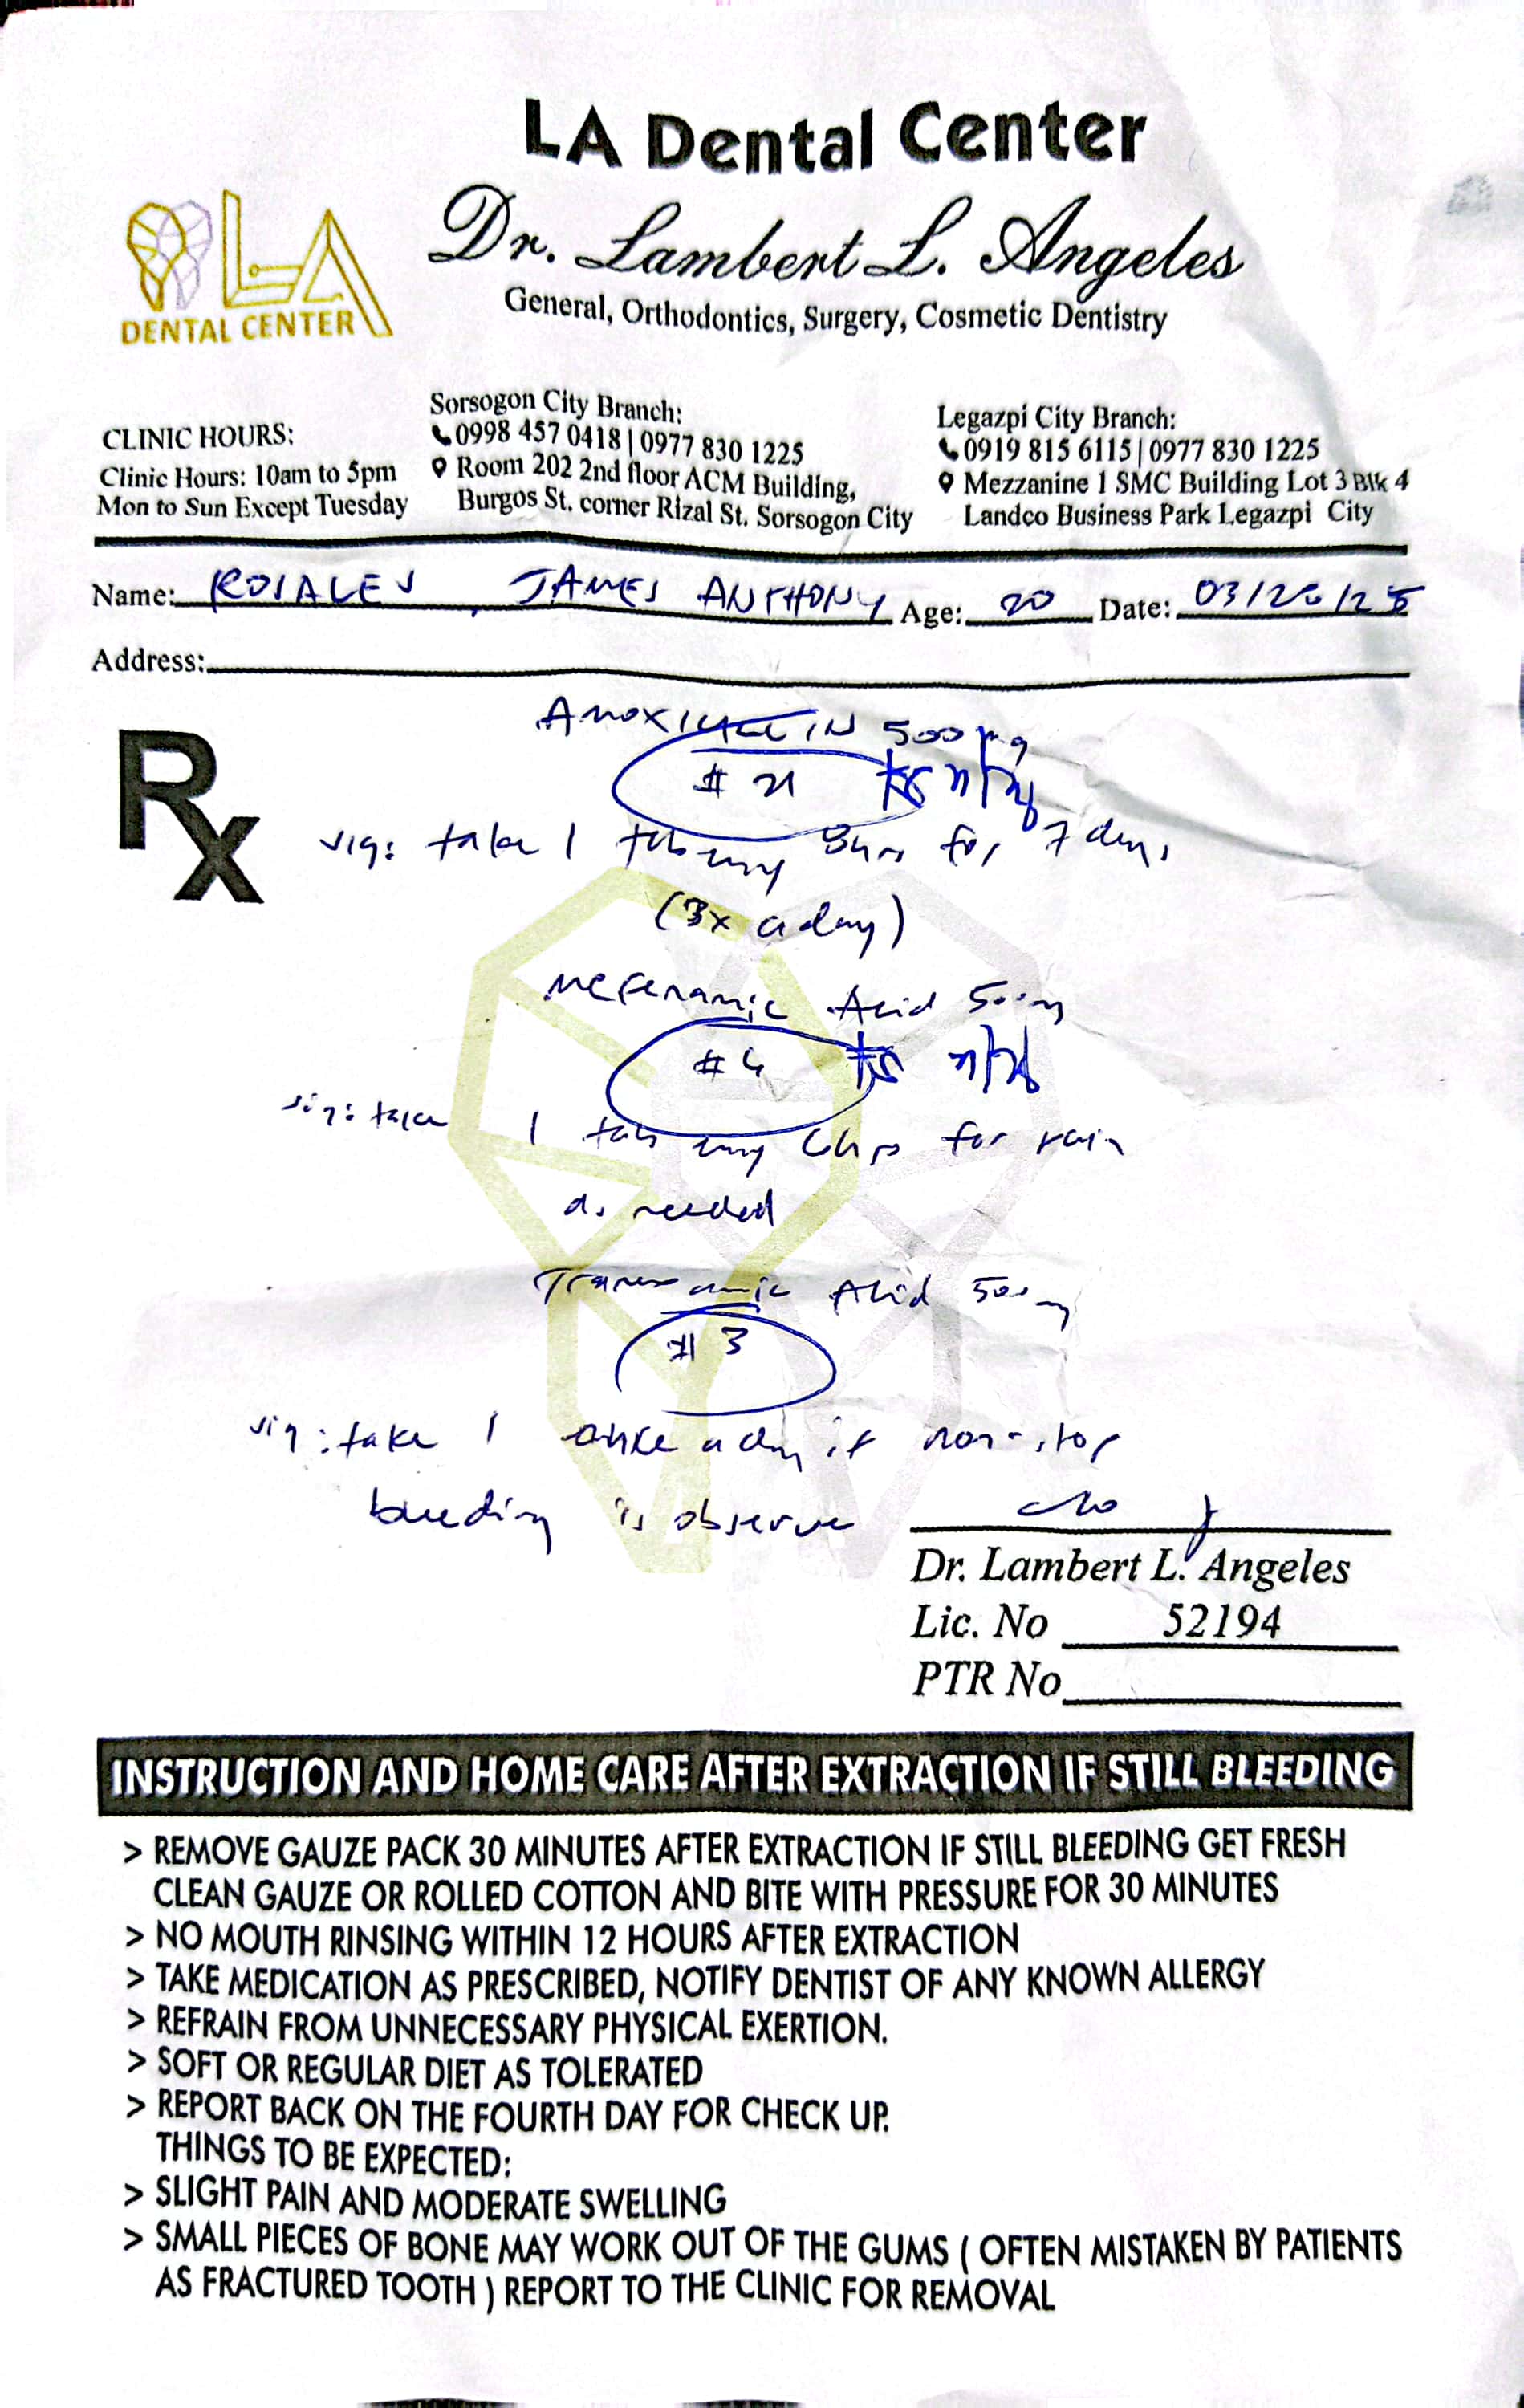 LA Dental Center
Dr. Lambert L. Angeles
General, Orthodontics, Surgery, Cosmetic Dentistry
LA
DENTAL CENTER
CLINIC HOURS:
Clinic Hours: 10am to 5pm
Mon to Sun Except Tuesday
Sorsogon City Branch:
0998 457 0418 | 0977 830 1225
Room 202 2nd floor ACM Building,
Burgos St. corner Rizal St. Sorsogon City
Legazpi City Branch:
0919 815 6115 | 0977 830 1225
Mezzanine 1 SMC Building Lot 3 Blk 4
Landco Business Park Legazpi City
Name: ROSALES, JAMES ANTHONY Age: 20 Date:
Address:
Rx
Amoxicillin 500mg
# 21
sig: take 1 tab every 8hrs for 7 days
(3x a day)
Mefenamic Acid 500mg
#
sig: take 1 tab every 6hrs for pain
as needed
Tranexamic Acid 500mg
# 3
sig: take 1 a day if non-stop
bleeding is observe
Dr. Lambert L. Angeles
Lic. No 52194
PTR No
INSTRUCTION AND HOME CARE AFTER EXTRACTION IF STILL BLEEDING
> REMOVE GAUZE PACK 30 MINUTES AFTER EXTRACTION IF STILL BLEEDING GET FRESH
CLEAN GAUZE OR ROLLED COTTON AND BITE WITH PRESSURE FOR 30 MINUTES
> NO MOUTH RINSING WITHIN 12 HOURS AFTER EXTRACTION
> TAKE MEDICATION AS PRESCRIBED, NOTIFY DENTIST OF ANY KNOWN ALLERGY
> REFRAIN FROM UNNECESSARY PHYSICAL EXERTION.
> SOFT OR REGULAR DIET AS TOLERATED
> REPORT BACK ON THE FOURTH DAY FOR CHECK UP.
THINGS TO BE EXPECTED:
> SLIGHT PAIN AND MODERATE SWELLING
> SMALL PIECES OF BONE MAY WORK OUT OF THE GUMS ( OFTEN MISTAKEN BY PATIENTS
AS FRACTURED TOOTH ) REPORT TO THE CLINIC FOR REMOVAL